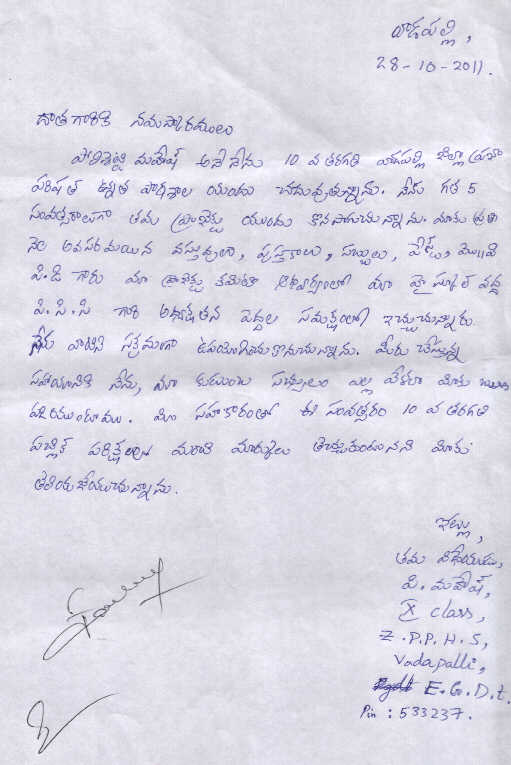 వాడపల్లి,
28-10-2011.
దాతగారికి నమస్కారములు
పోలిశెట్టి మహేష్ అనే నేను 10 వ తరగతి వాడపల్లి జిల్లా ప్రజా
పరిషత్ ఉన్నత పాఠశాల యందు చదువుతున్నాను. నేను గత 5
సంవత్సరాలుగా తమ ప్రాజెక్టు యందు కొనసాగుచున్నాను. మాకు ప్రతి
నెల అవసరమయిన వస్తువులు, పుస్తకాలు, సబ్బులు, పేస్ట్, మొ॥నవి
పి.డి గారు మా ప్రాజెక్టు కమిటీ ఆధ్వర్యంలో మా హైస్కూల్ వద్ద
పి.సి.సి గారి అధ్యక్షతన పెద్దల సమక్షంలో ఇచ్చుచున్నారు.
నేను వాటిని సక్రమంగా ఉపయోగించుకొనుచున్నాను. మీరు చేస్తున్న
సహాయానికి నేను, మా కుటుంబ సభ్యులం ఎల్ల వేళలా మీకు
మీ సహకారంతో ఈ సంవత్సరం 10 వ తరగతి
పబ్లిక్ పరీక్షలలో మంచి మార్కులు తెచ్చుకుంటానని మీకు
తెలియజేయుచున్నాను.
ఇట్లు,
తమ విధేయుడు,
పి. మహేష్,
X class,
Z.P.P.H.S,
Vadapalli,
E.G.D.t.
Pin : 533237.